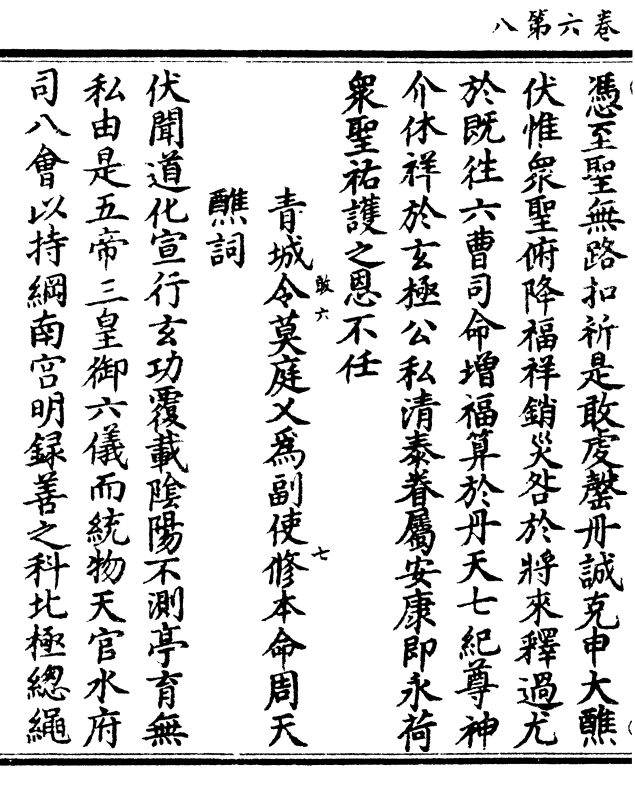 卷六第八
憑至聖無路扣祈是敢虔罄丹誠克申大醮
伏惟衆聖俯降福祥銷災咎於將來釋過尤
於既往六曹司命增福算於丹天七紀尊神
介休祥於玄極公私清泰眷屬安康即永荷
衆聖祐護之恩不任
青城令莫庭乂爲副使修本命周天
敢六
七
醮詞
伏聞道化宣行玄功覆載陰陽不測亭育無
私由是五帝三皇御六儀而統物天官水府
司八會以持綱南宮明録善之科北極總繩